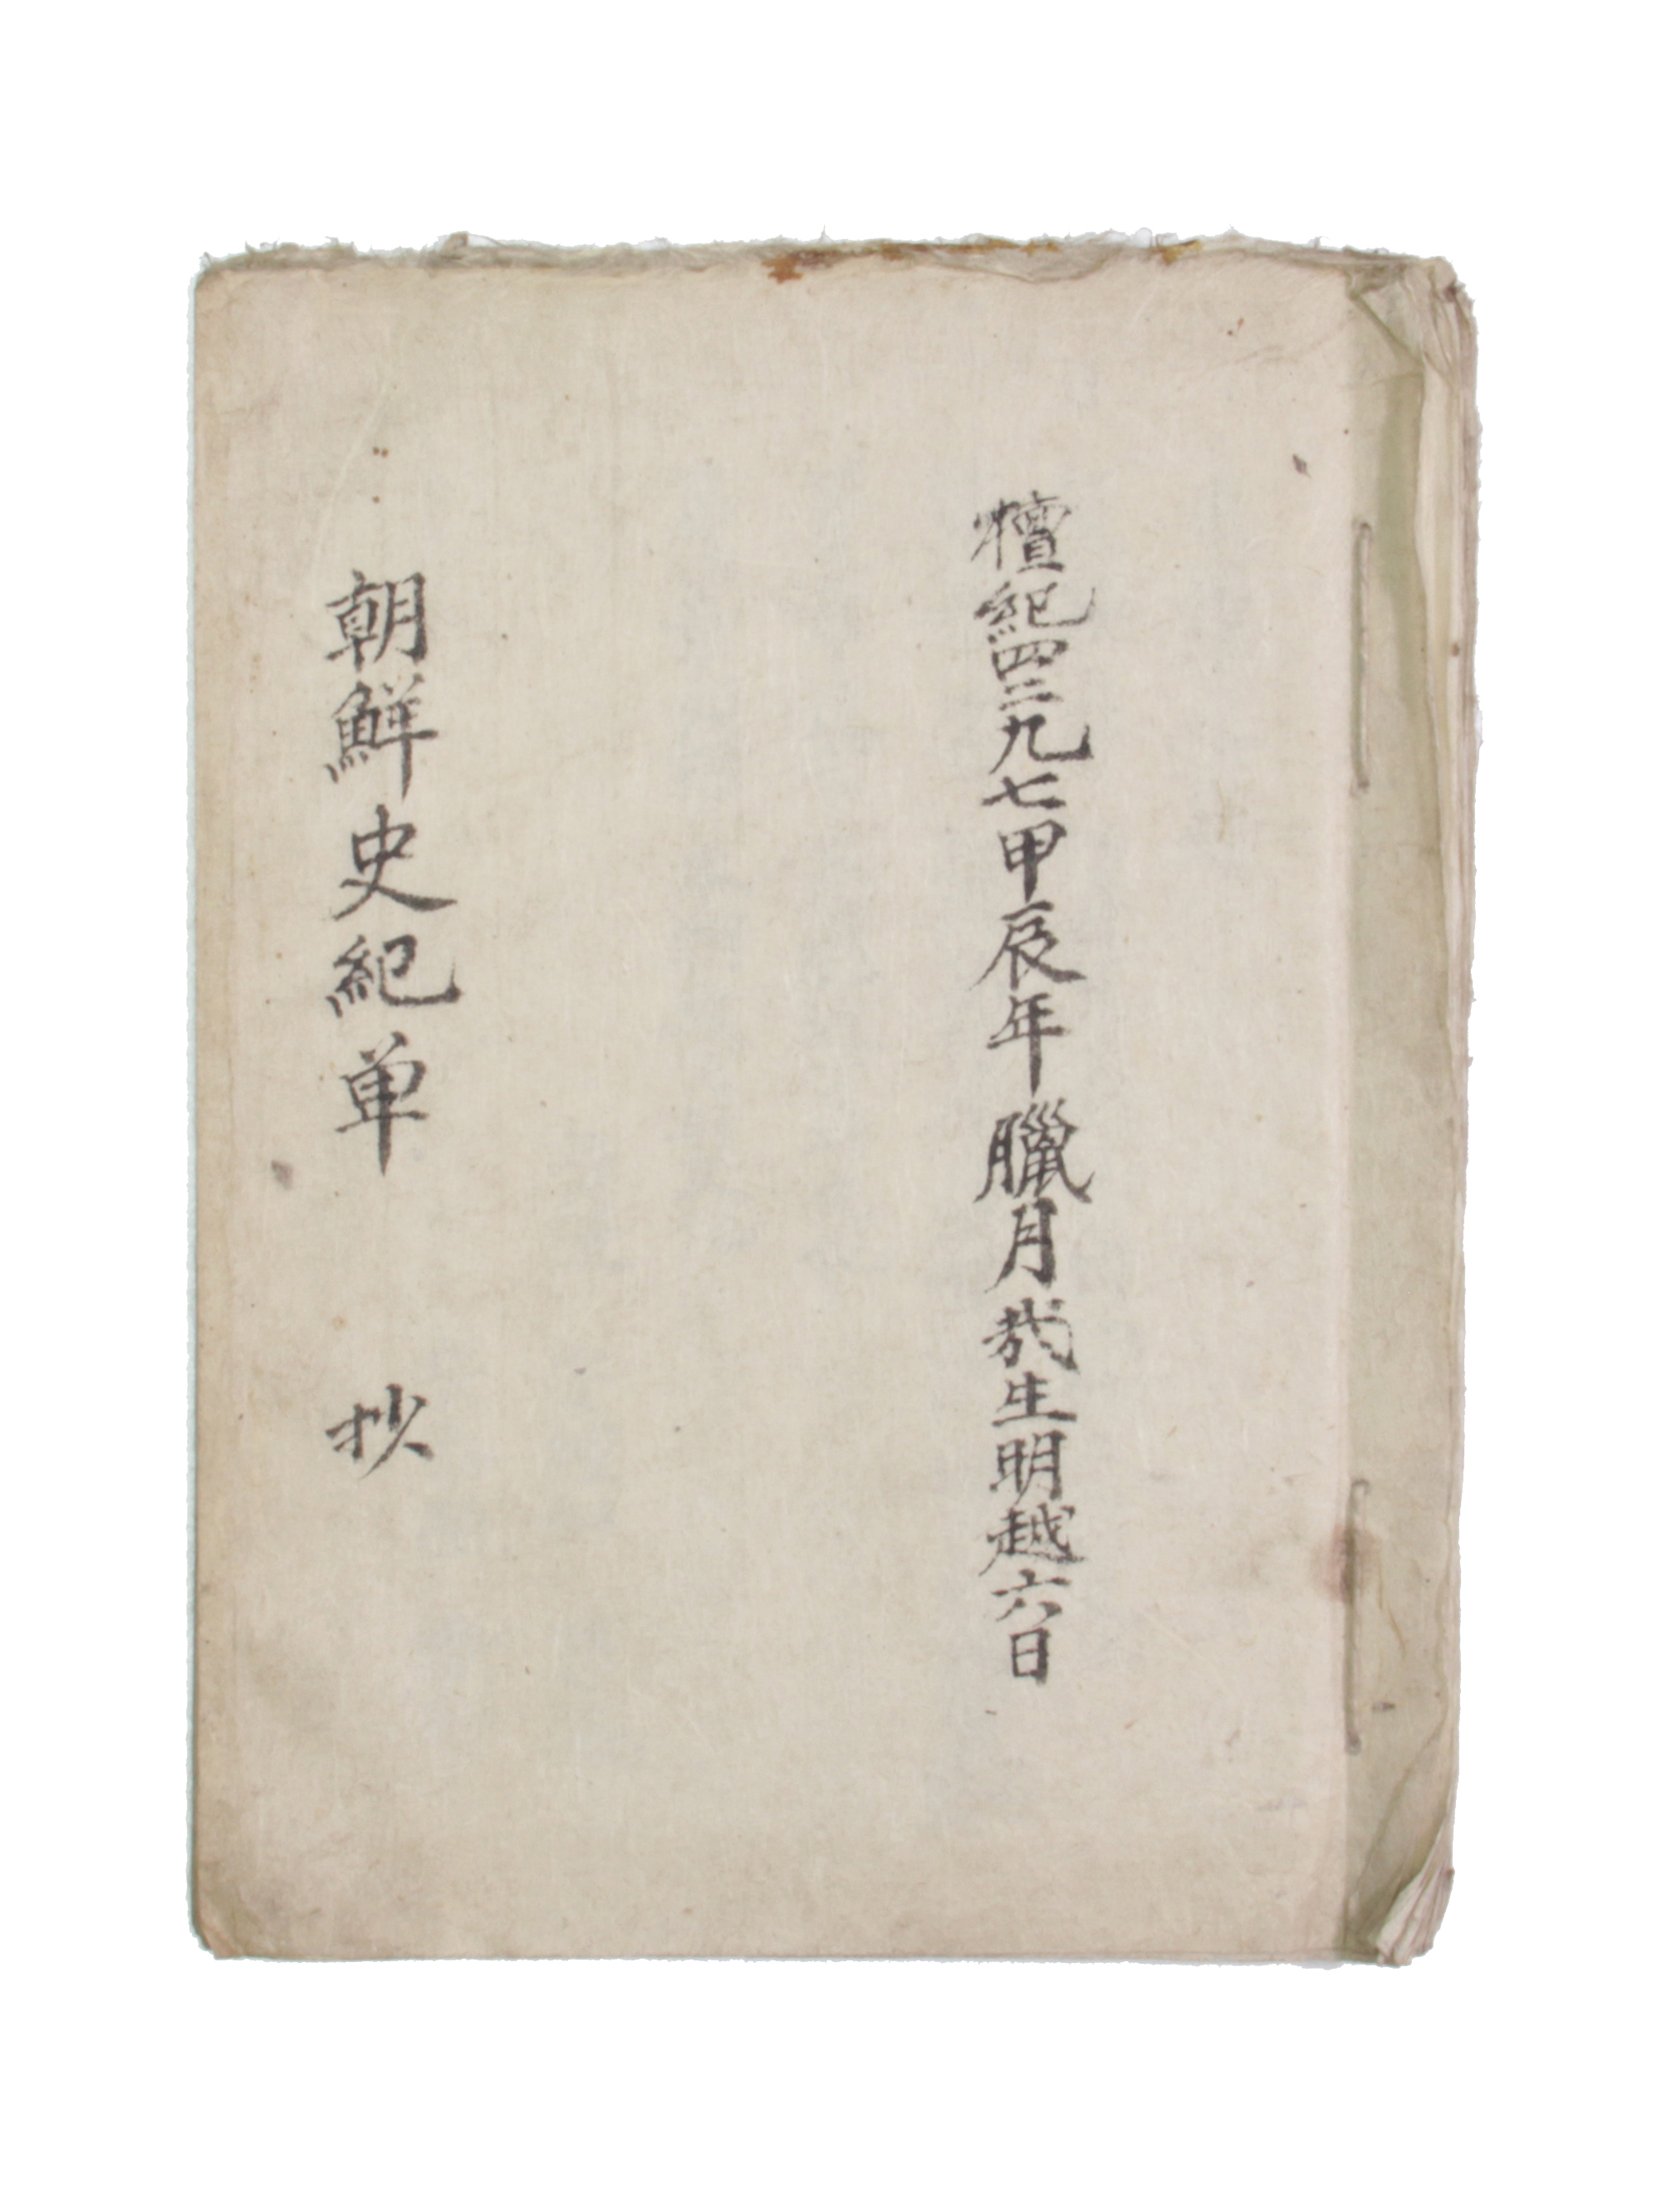 檀紀四二九七甲辰年臘月哉生明越六日
朝鮮史紀单 抄